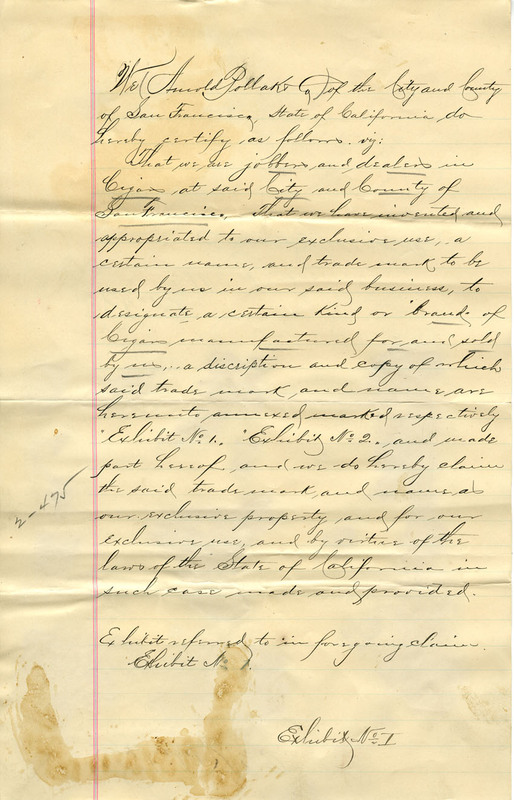 We, Arnold Pollak & Co of the City and County
of San Francisco, State of California, do
hereby certify as follows. viz:
That we are jobbers and dealers in
Cigars at said City and County of
San Francisco, That we have invented and
appropriated to our exclusive use, a
certain name, and trade mark to be
used by us in our said business, to
designate a certain kind or "brand" of
Cigars manufactured for and sold
by us, a discription and copy of which
said trade mark and name, are
hereunto annexed marked respectively
"Exhibit No 1." "Exhibit No 2." and made
part hereof, and we do hereby claim
the said trade mark, and name, as
our exclusive property, and for our
exclusive use, and by virtue of the
laws of the State of California in
such case made and provided.
2-475
Exhibits referred to in foregoing claim.
Exhibit No
Exhibit No 1